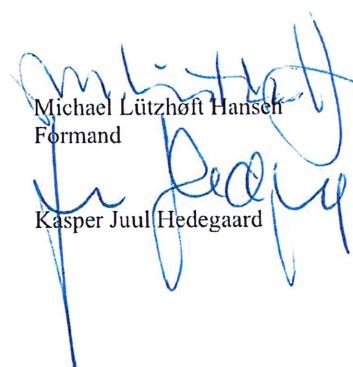 Michael Lützhøft Hansen
Formand
Kasper Juul Hedegaard